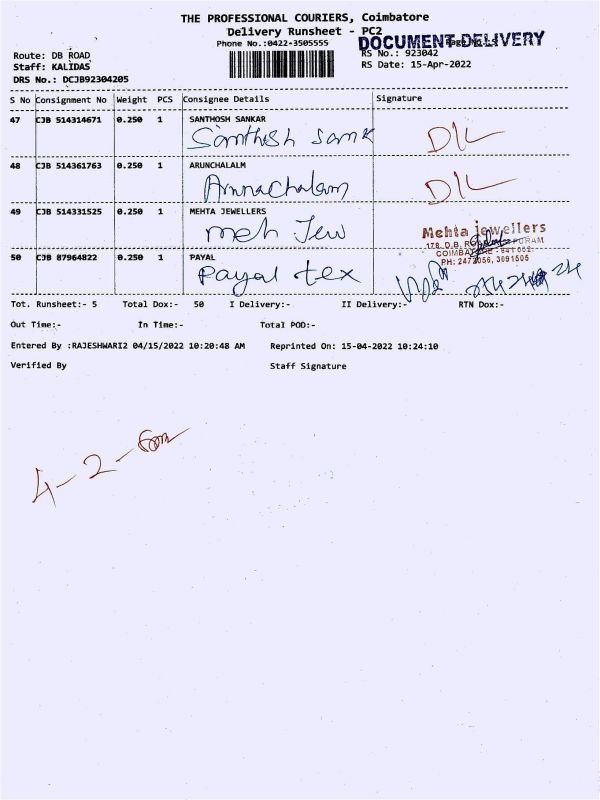 THE PROFESSIONAL COURIERS, Coimbatore
Delivery Runsheet - PC2
Phone No.:0422-3505555
DOCUMENT DELIVERY
Route: DB ROAD
RS No.: 923042
Staff: KALIDAS
RS Date: 15-Apr-2022
DRS No.: DCJB92304205
S No Consignment No Weight PCS Consignee Details Signature
47 CJB 514314671 0.250 1 SANTHOSH SANKAR
Santhosh Sank
D/L
48 CJB 514361763 0.250 1 ARUNCHALALM
Arunachalam
D/L
49 CJB 514331525 0.250 1 MEHTA JEWELLERS
meh Jew
Mehta jewellers
178, D.B. PURAM
COIMBATORE - 641 002.
PH: 2472056, 3091505
50 CJB 87964822 0.250 1 PAYAL
Payal tex
Tot. Runsheet:- 5 Total Dox:- 50 I Delivery:- II Delivery:- RTN Dox:-
Out Time:- In Time:- Total POD:-
Entered By :RAJESHWARI2 04/15/2022 10:20:48 AM Reprinted On: 15-04-2022 10:24:10
Verified By Staff Signature
4-2-